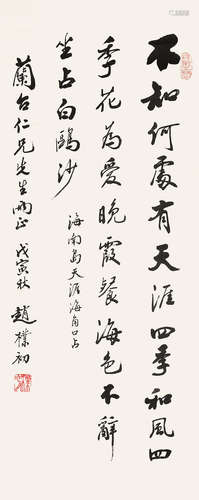 不知何處有天涯四季和風四
季花為愛晚霞餐海色不辭
坐占白鷗沙
海南島天涯海角口占
蘭台仁兄先生兩正
戊寅秋 趙樸初